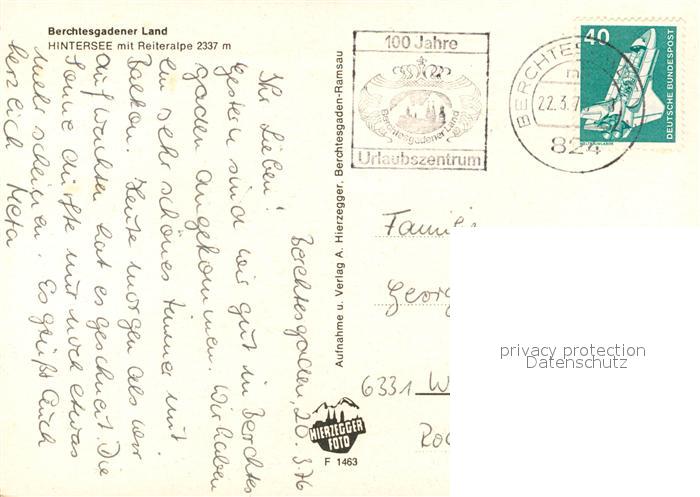 Berchtesgadener Land
HINTERSEE mit Reiteralpe 2337 m
Berchtesgaden, 20. 3. 76
Ihr Lieben!
Gestern sind wir gut in Berchtes
gaden angekommen. Wir haben
ein sehr schönes Zimmer mit
Balkon. Heute morgen als wir
aufwachten hat es geschneit. Die
Sonne dürfte nur noch etwas
mehr scheinen. Es grüßt Euch
herzlich Meta
Aufnahme u. Verlag A. Hierzegger, Berchtesgaden-Ramsau
HIERZEGGER
FOTO
F 1463
100 Jahre
Berchtesgadener Land
Urlaubszentrum
BERCHTES
22.3.7
824
40
DEUTSCHE BUNDESPOST
WELTRAUMLABOR
Famili
Georg
6331 W
privacy protection
Datenschutz